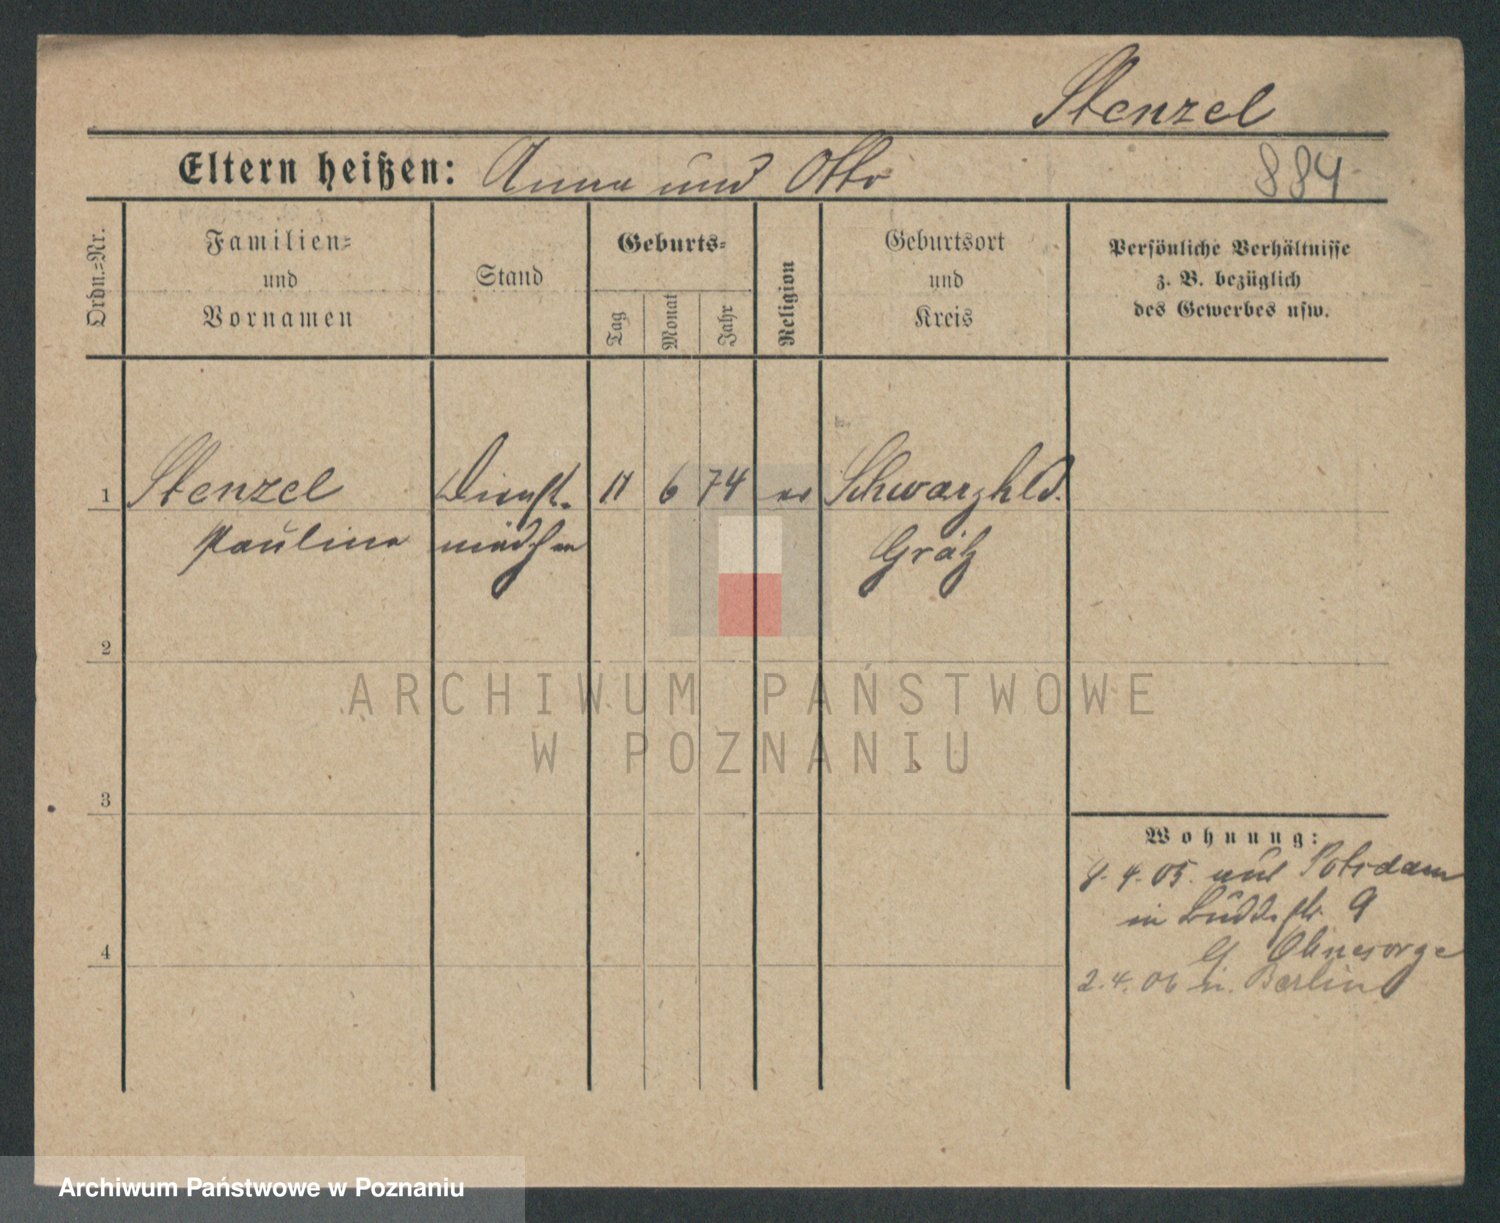 Stenzel
Eltern heißen: Anna und Otto
884
Ordn.=Nr.
Familien=
und
Vornamen
Stand
Geburts=
Tag
Monat
Jahr
Religion
Geburtsort
und
Kreis
Persönliche Verhältnisse
z. B. bezüglich
des Gewerbes usw.
1 Stenzel Dienst- 11 6 74 ev Schwarzhld.
Paulina mädchen Grätz
2
3
4
ARCHIWUM PAŃSTWOWE
W POZNANIU
Wohnung:
4. 05. aus Potsdam
in 9
Ohnesorge
2. 4. 06 in Berlin
Archiwum Państwowe w Poznaniu